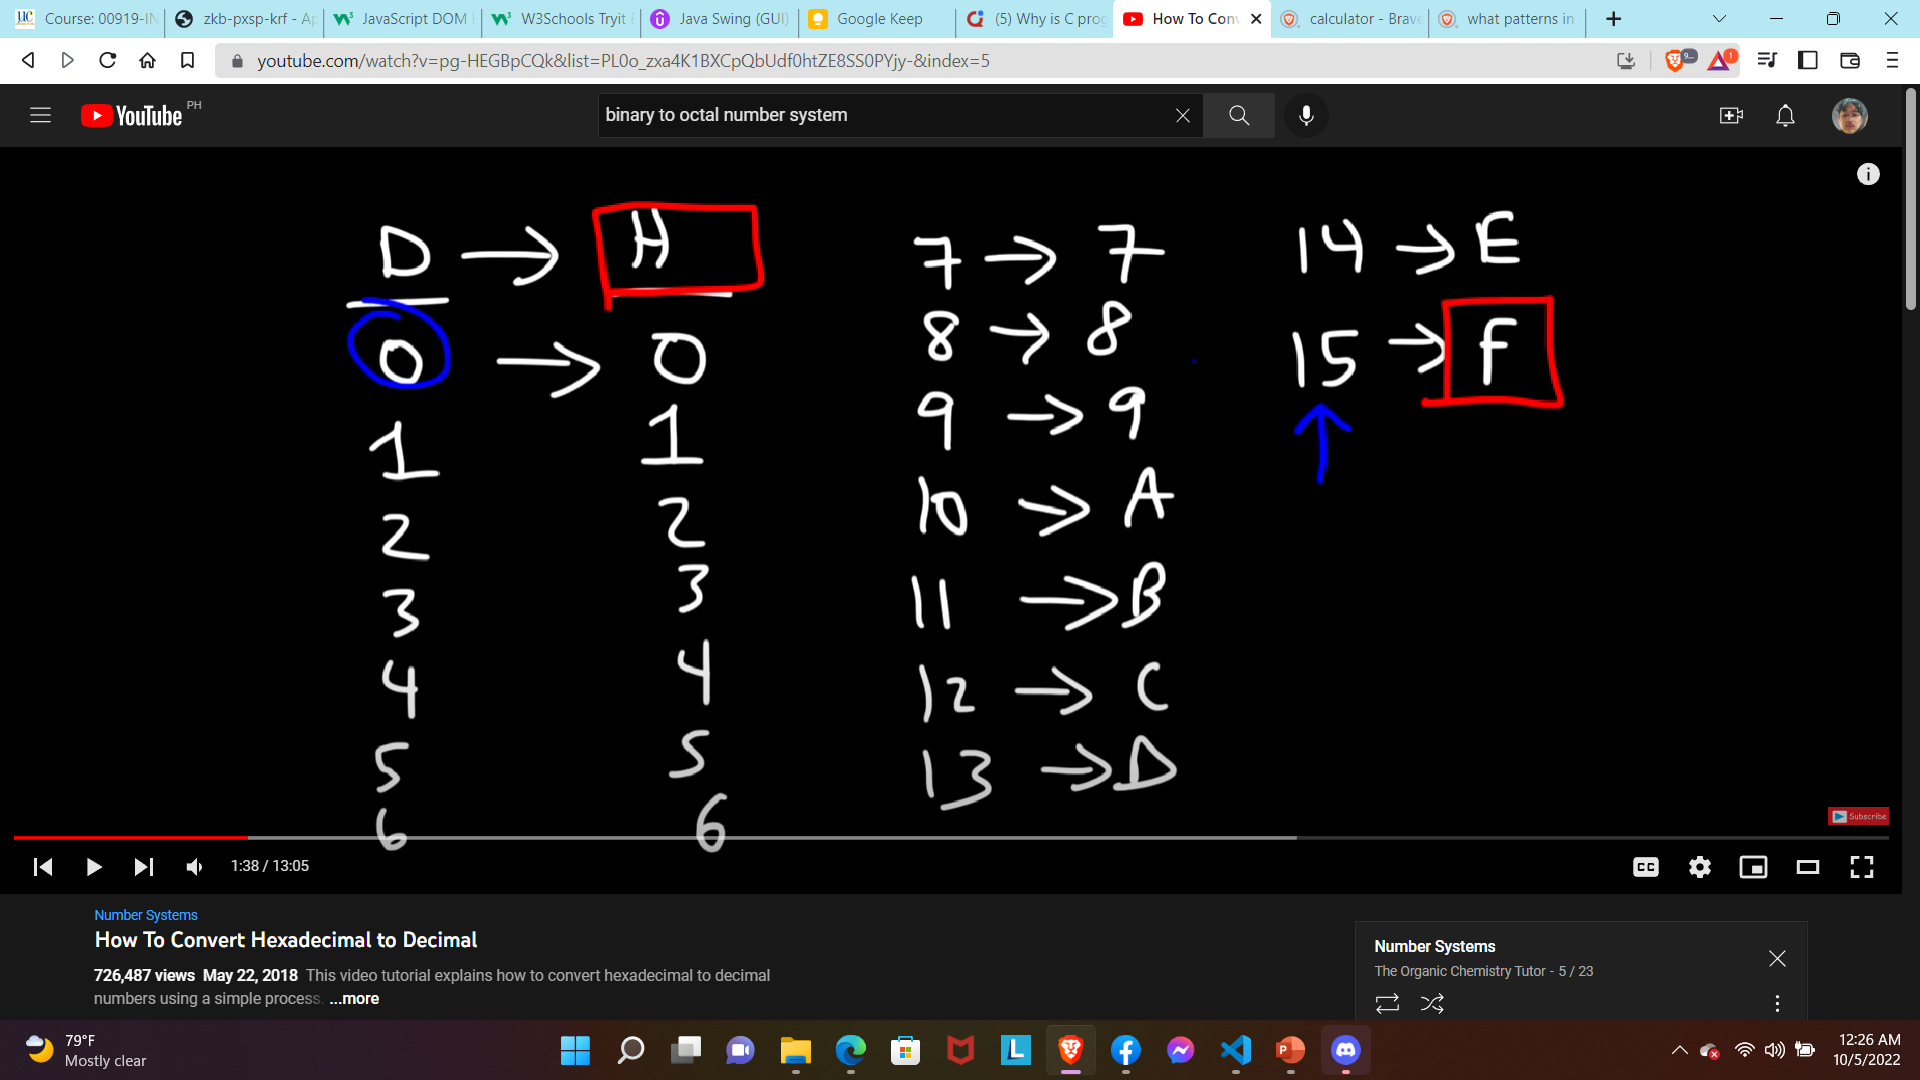 Course: 00919-IN
zkb-pxsp-krf - Ap
JavaScript DOM
W3Schools Tryit E
Java Swing (GUI)
Google Keep
(5) Why is C prog
How To Con
calculator - Brave
what patterns in
youtube.com/watch?v=pg-HEGBpCQk&list=PL0o_zxa4K1BXCpQbUdf0htZE8SS0PYjy-&index=5
YouTube PH
binary to octal number system
D → H
0 → 0
1 1
2 2
3 3
4 4
5 5
6 6
7 → 7
8 → 8
9 → 9
10 → A
11 → B
12 → C
13 → D
14 → E
15 → F
Subscribe
1:38 / 13:05
CC
Number Systems
How To Convert Hexadecimal to Decimal
726,487 views May 22, 2018 This video tutorial explains how to convert hexadecimal to decimal
numbers using a simple process. ...more
Number Systems
The Organic Chemistry Tutor - 5 / 23
79°F
Mostly clear
12:26 AM
10/5/2022